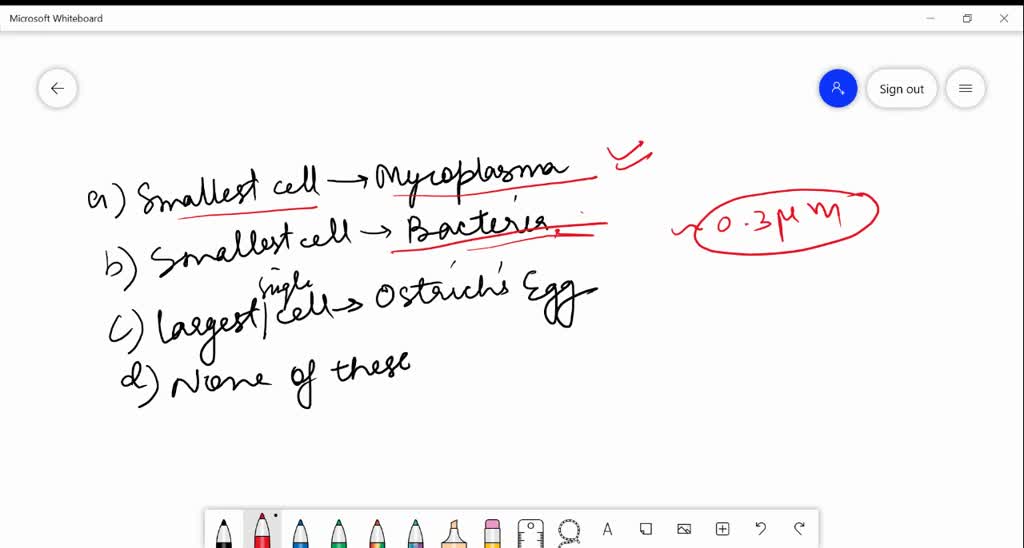 Microsoft Whiteboard
Sign out
a) Smallest cell → Mycoplasma
b) Smallest cell → Bacteria.
0.3 μm
c) Largest single cell → Ostrich's Egg
d) None of these
A